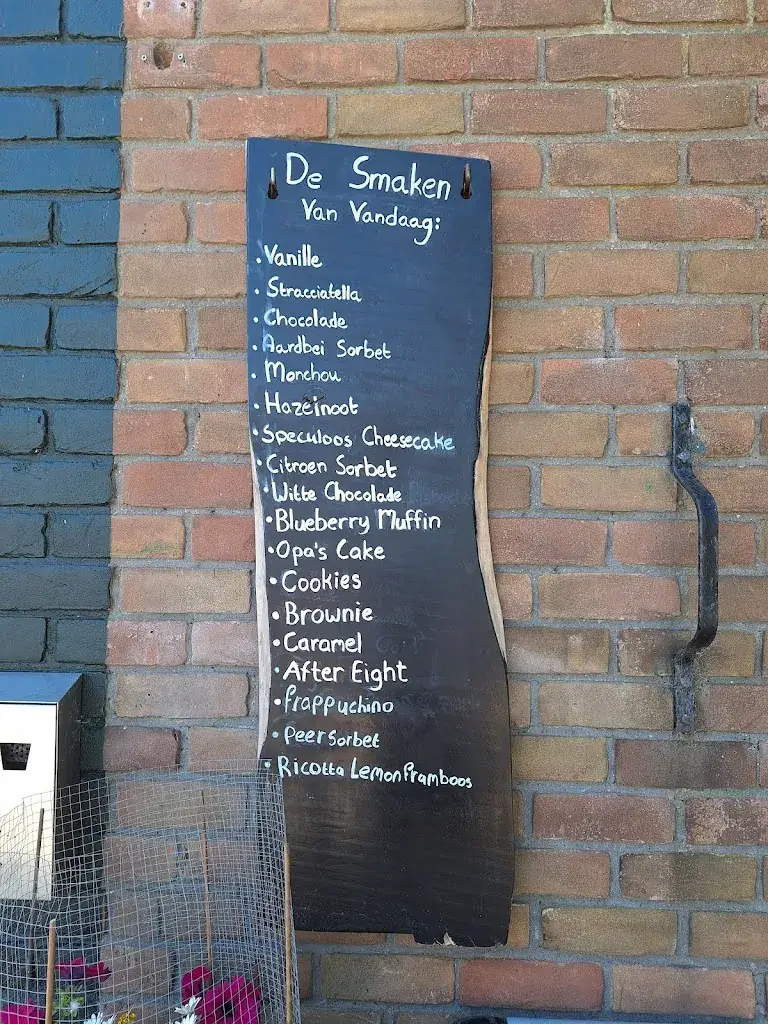 De Smaken
Van Vandaag:
• Vanille
• Stracciatella
• Chocolade
• Aardbei Sorbet
• Monchou
• Hazelnoot
• Speculoos Cheesecake
• Citroen Sorbet
• Witte Chocolade
• Blueberry Muffin
• Opa's Cake
• Cookies
• Brownie
• Caramel
• After Eight
• frappuchino
• Peersorbet
• Ricotta Lemon Framboos